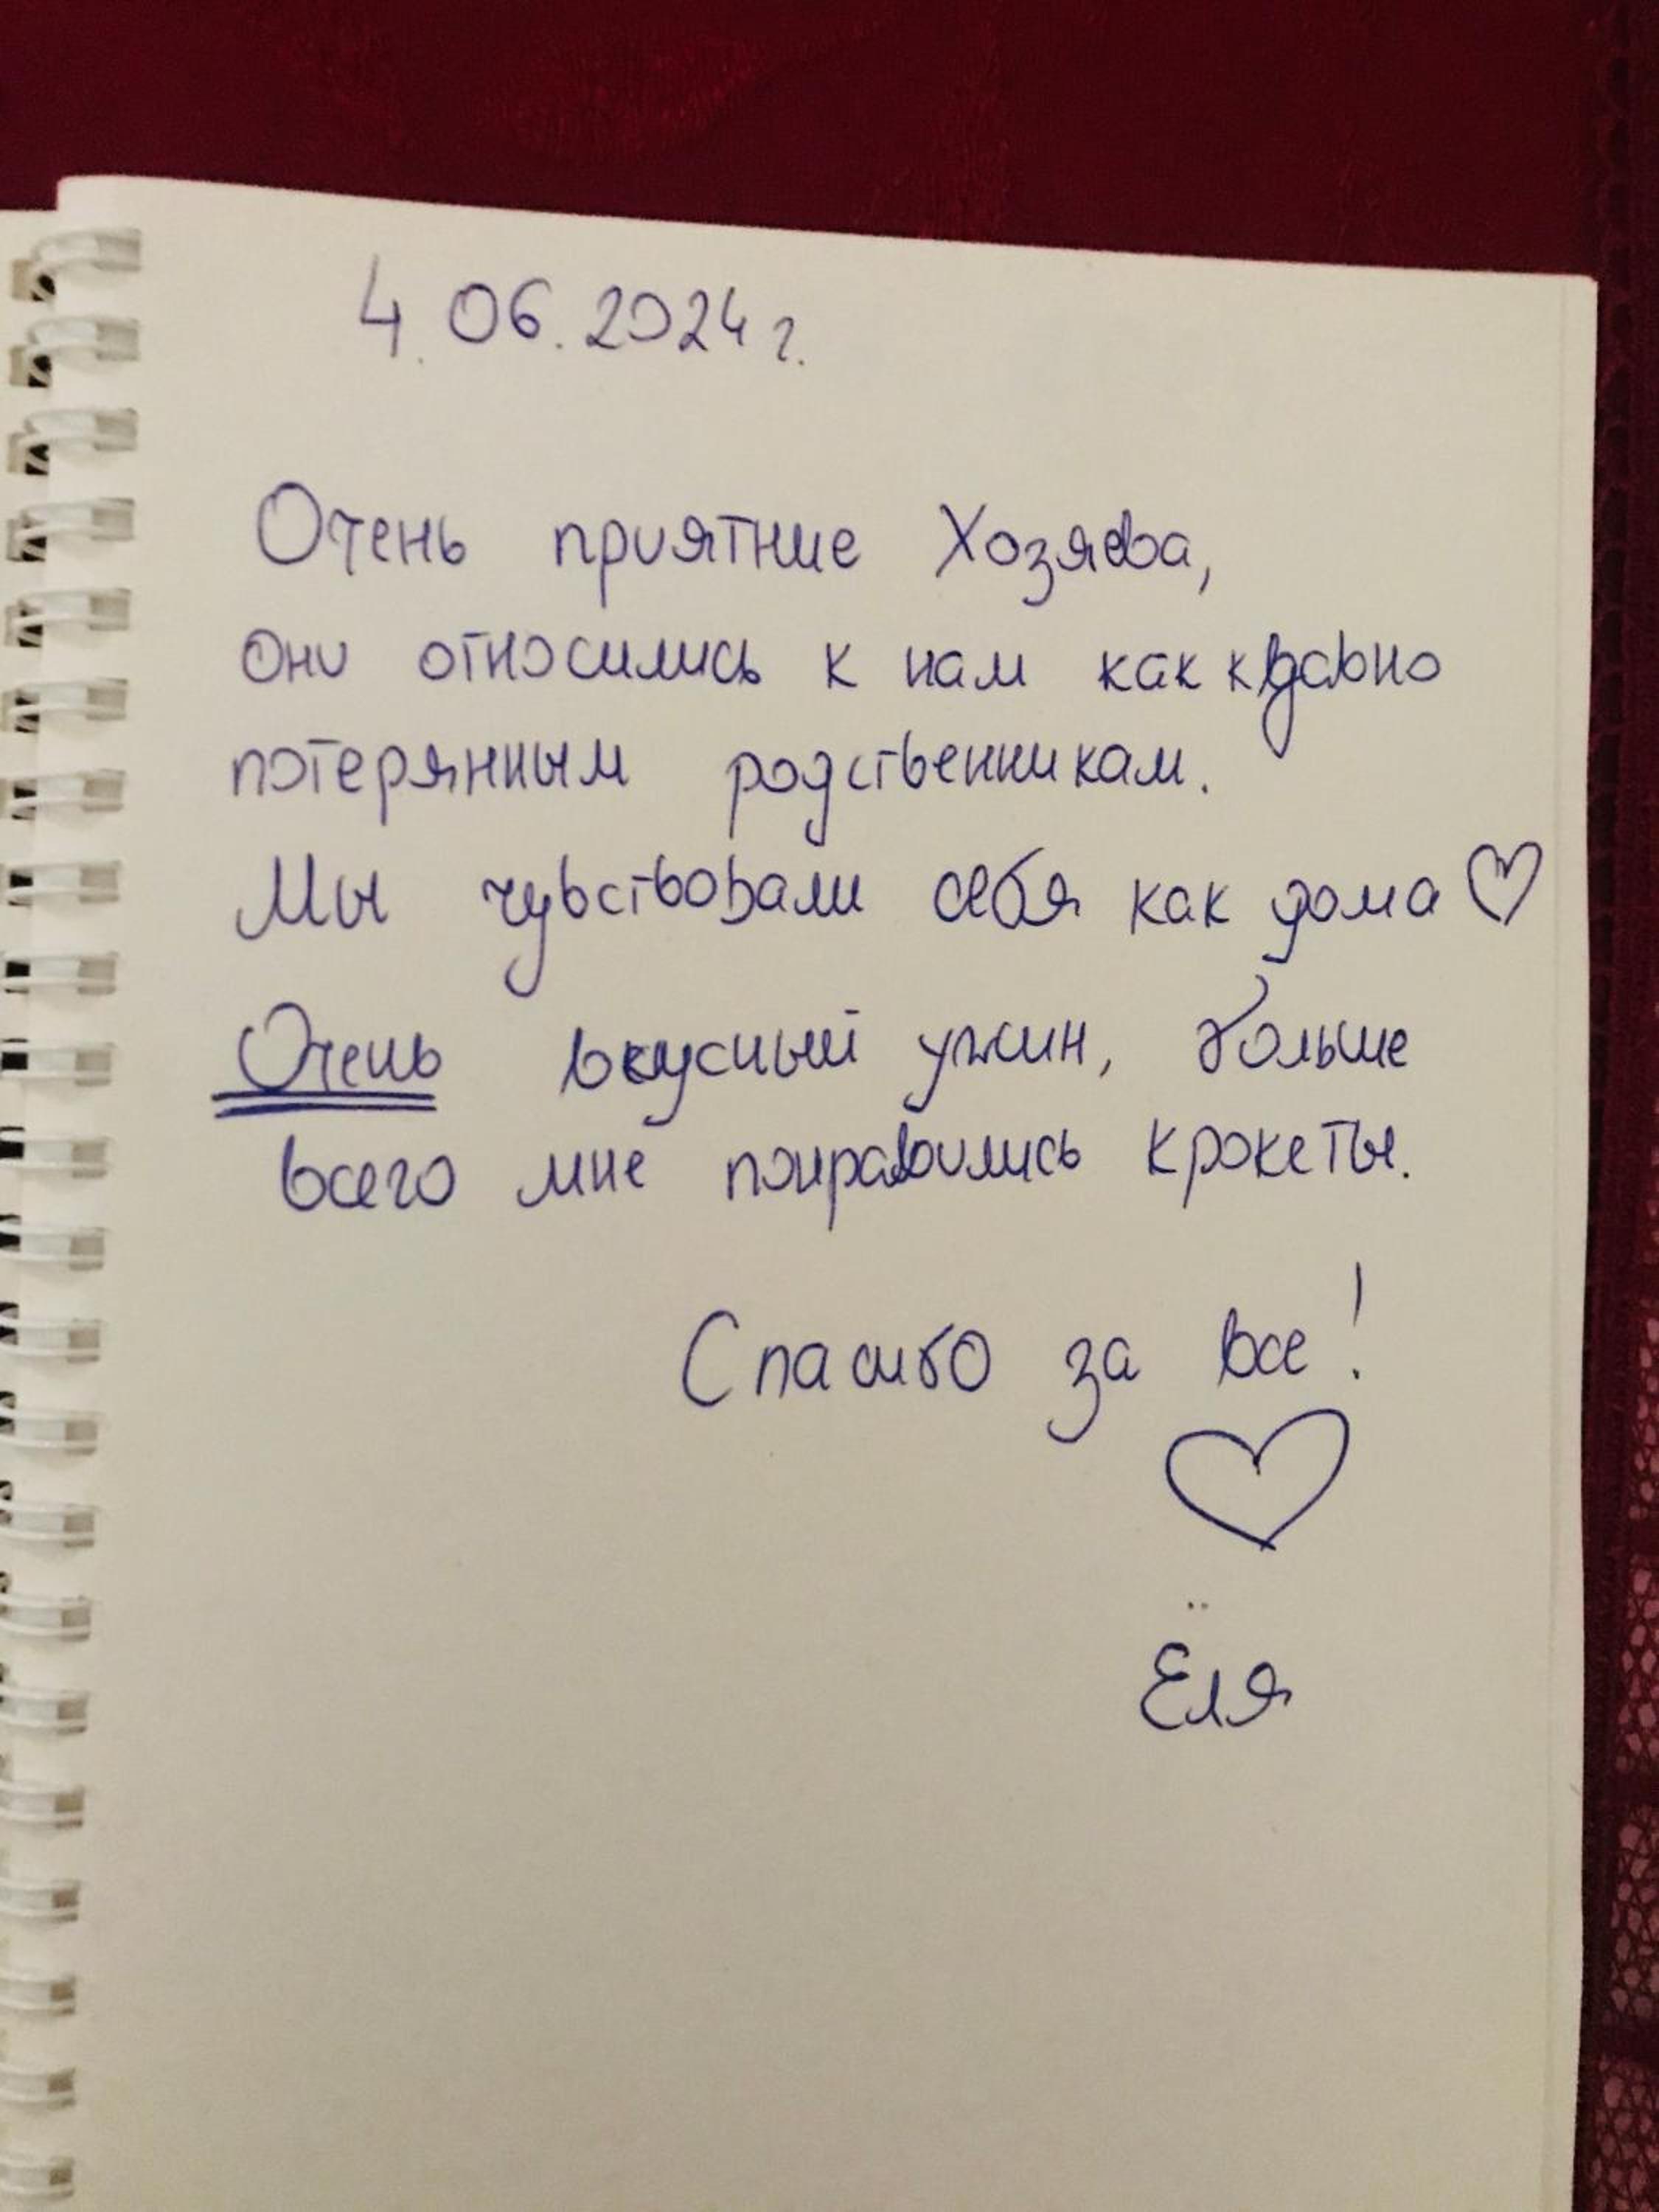 4.06.2024г.
Очень приятние Хозяева,
Они относились к нам как к давно
потерянным родственникам.
Мы чувствовали себя как дома ♡
Очень вкусный ужин, больше
всего мне понравились крокеты.
Спасибо за все!
♡
Ёля